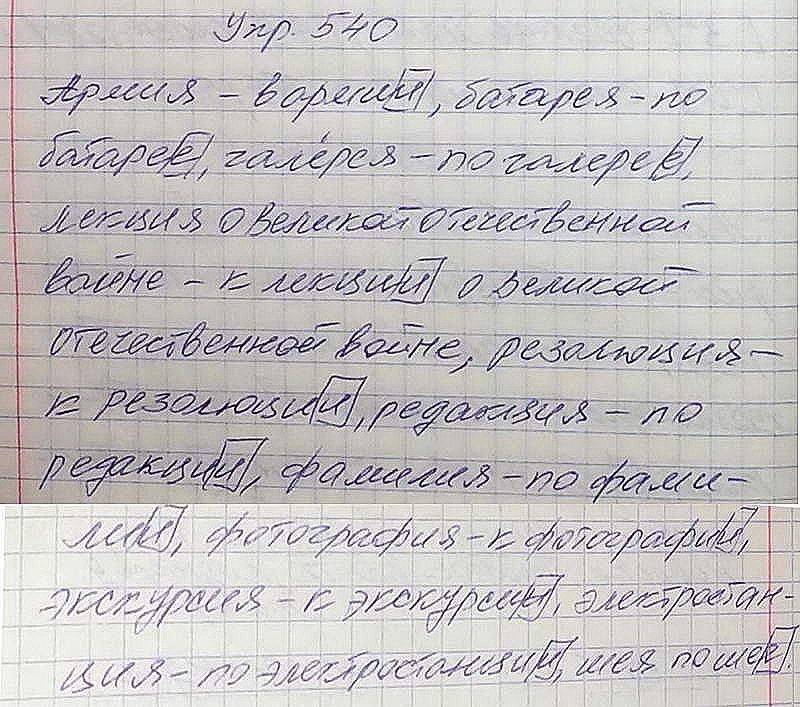 Упр. 540
Армия – в армии, батарея – по
батарее, галерея – по галерее,
лекция о Великой Отечественной
войне – к лекции о Великой
Отечественной войне, резолюция –
к резолюции, редакция – по
редакции, фамилия – по фами-
лии, фотография – к фотографии,
экскурсия – к экскурсии, электростан-
ция – по электростанции, шея по шее.